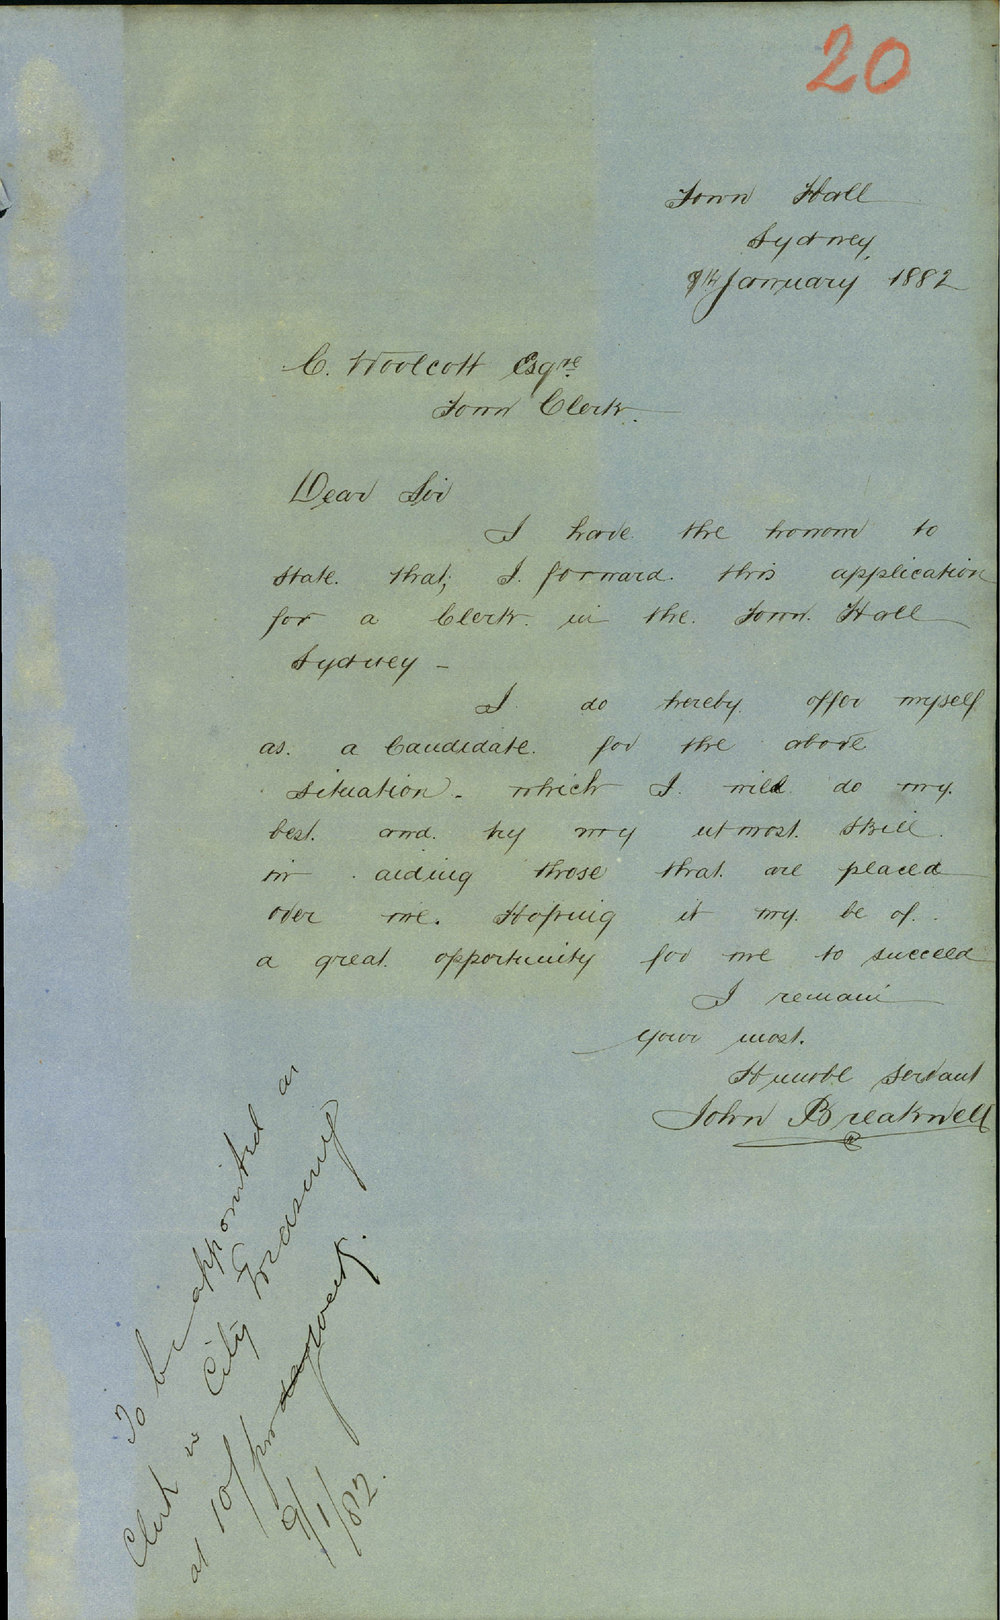 20
Town Hall
Sydney
9th January 1882
C. Woolcott Esqre
Town Clerk.
Dear Sir
I have the honour to
state. that; I. forward. this application
for a Clerk. in the. Town. Hall
Sydney -
I do hereby offer myself
as. a Candidate. for the above
situation. which I will do my.
best. and. try my utmost. skill.
in aiding those that. are placed
over me. Hoping it my. be of.
a great. opportunity for me to succeed
I remain
your most.
Humble servant
John Breakwell
To be appointed as
Clerk in City Treasury
at 10/ per day week.
9/1/82.